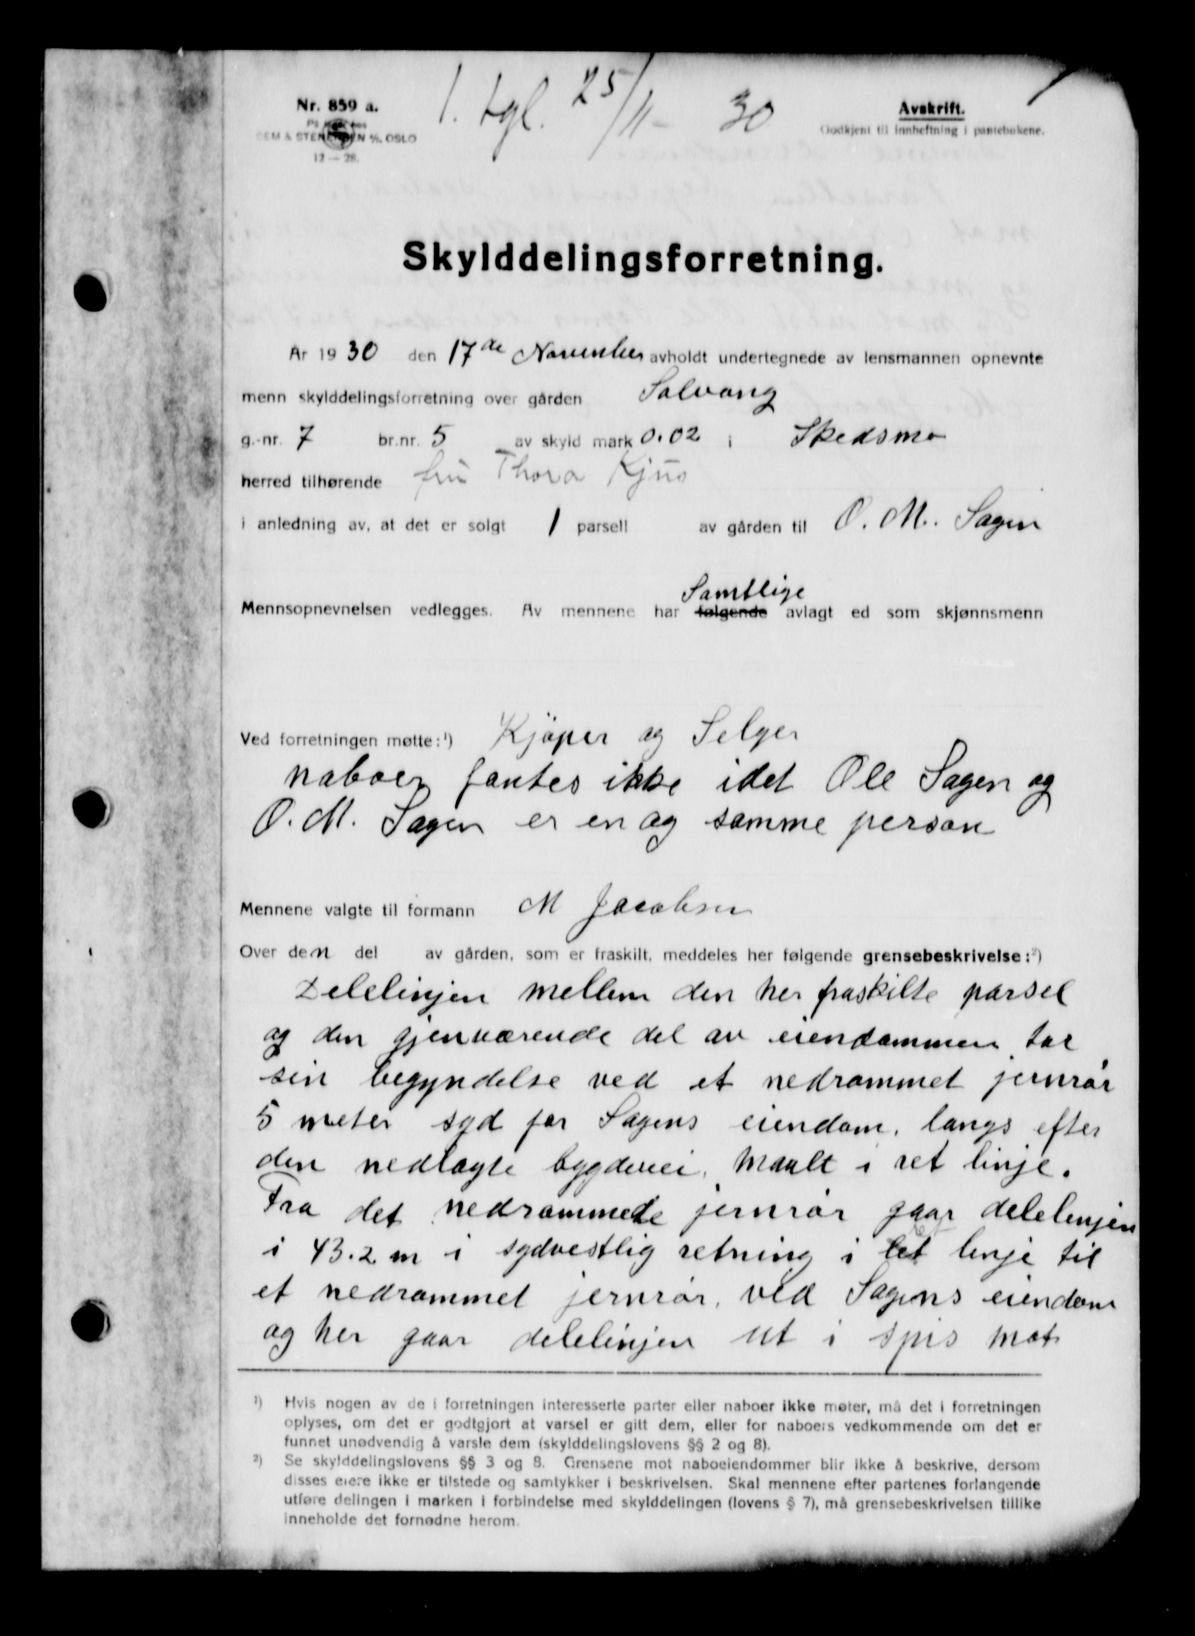 Nr. 859 a.
SEM & STENERSEN A/S. OSLO
12 — 28.
1. tgl. 25/11 - 30
Avskrift.
Godkjent til innheftning i pantebøkene.
Skylddelingsforretning.
År 1930 den 17de November avholdt undertegnede av lensmannen opnevnte
menn skylddelingsforretning over gården Solvang
g.-nr. 7 br.nr. 5 av skyld mark 0.02 i Skedsmo
herred tilhørende fru Thora Kjus
i anledning av, at det er solgt 1 parsell av gården til O. M. Sagen
Samtlige
Mennsopnevnelsen vedlegges. Av mennene har følgende avlagt ed som skjønnsmenn
Ved forretningen møtte:¹) Kjøper og Selger
naboer fantes ikke idet Ole Sagen og
O. M. Sagen er en og samme person
Mennene valgte til formann M Jacobsen
Over den del av gården, som er fraskilt, meddeles her følgende grensebeskrivelse:²)
Delelinjen mellem den her fraskilte parsel
og den gjenværende del av eiendommen tar
sin begyndelse ved et nedrammet jernrør
5 meter syd for Sagens eiendom, langs efter
den nedlagte bygdevei, maalt i ret linje.
Fra det nedrammede jernrør gaar delelinjen
i 43.2 m i sydvestlig retning i ret linje til
et nedrammet jernrør, ved Sagens eiendom
og her gaar delelinjen ut i spis mot
¹) Hvis nogen av de i forretningen interesserte parter eller naboer ikke møter, må det i forretningen
oplyses, om det er godtgjort at varsel er gitt dem, eller for naboers vedkommende om det er
funnet unødvendig å varsle dem (skylddelingslovens §§ 2 og 8).
²) Se skylddelingslovens §§ 3 og 8. Grensene mot naboeiendommer blir ikke å beskrive, dersom
disses eiere ikke er tilstede og samtykker i beskrivelsen. Skal mennene efter partenes forlangende
utføre delingen i marken i forbindelse med skylddelingen (lovens § 7), må grensebeskrivelsen tillike
inneholde det fornødne herom.